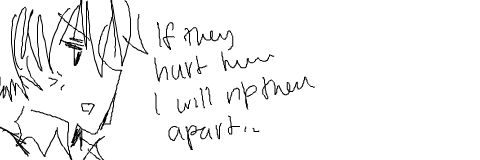 If they
hurt him
I will rip them
apart..